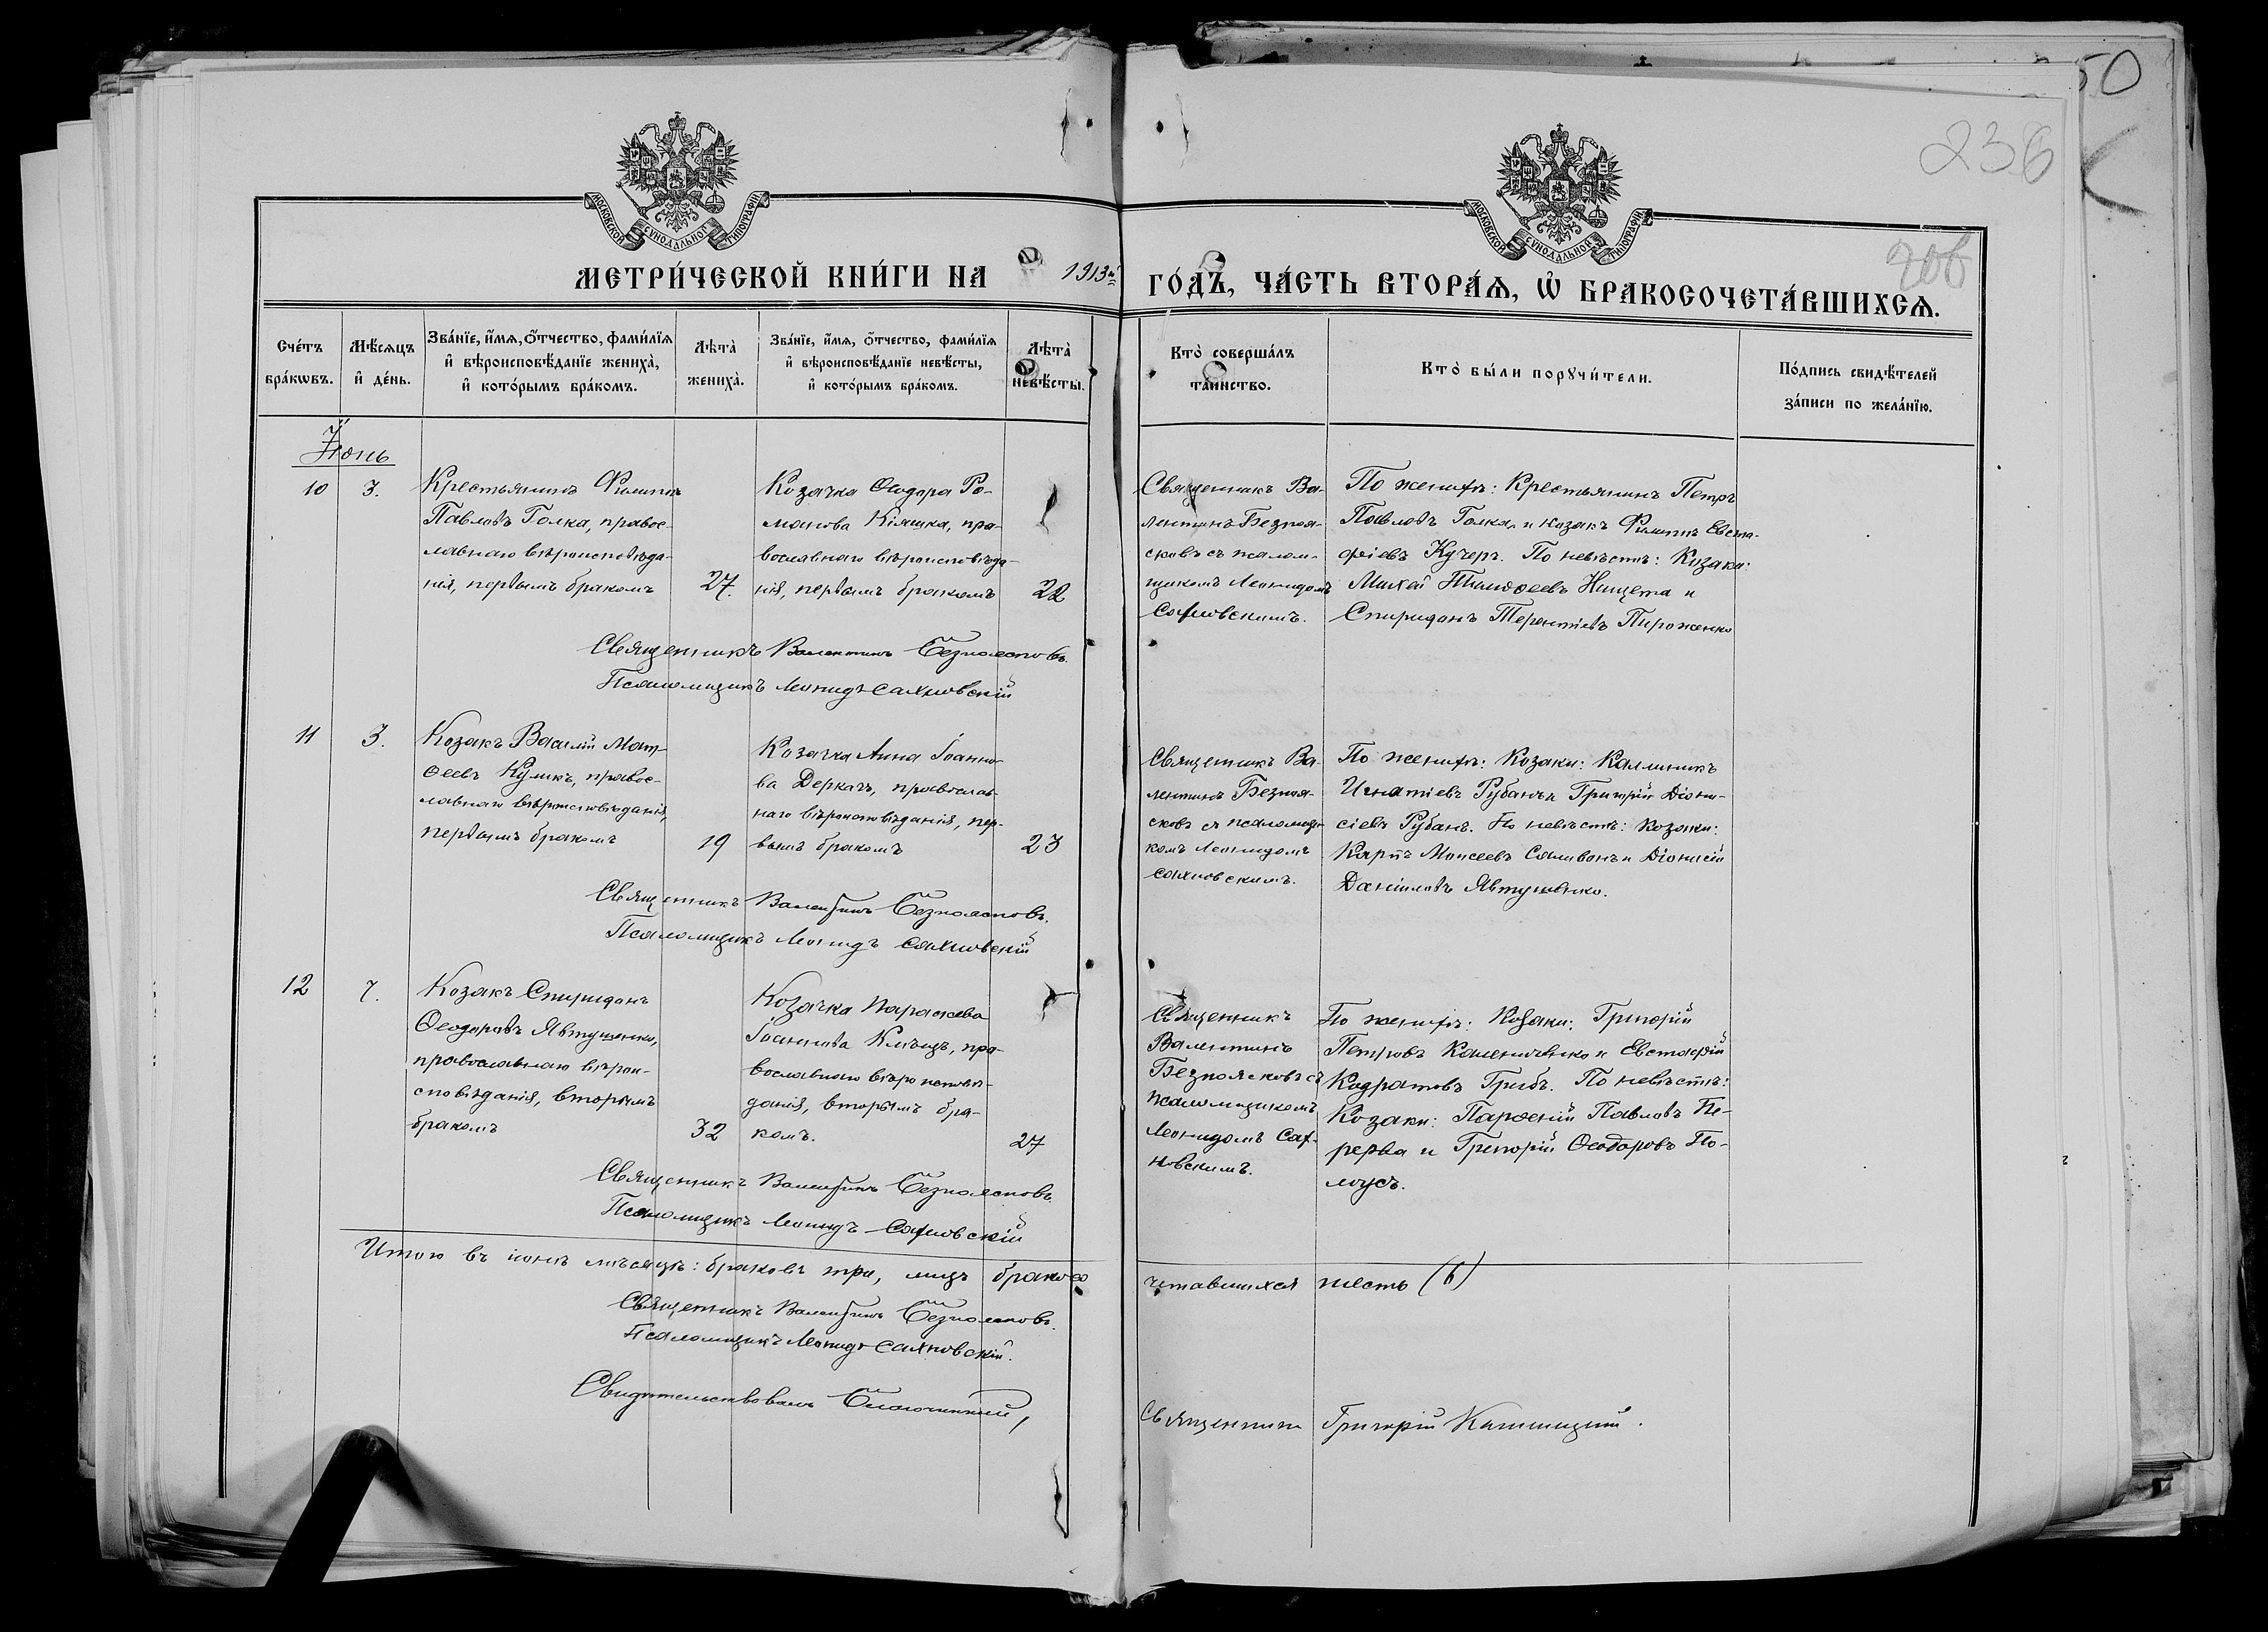 50
236
206
МОСКОВСКОЙ СѴНОДАЛЬНОЙ ТИПОГРАФІИ
МОСКОВСКОЙ СѴНОДАЛЬНОЙ ТИПОГРАФІИ
МЕТРИ́ЧЕСКОЙ КНИ́ГИ НА 1913й ГО́ДЪ, ЧА́СТЬ ВТОРА́Ѧ, Ѽ БРАКОСОЧЕТА́ВШИХСѦ.
Сче́тъ
бра́кѡвъ.
Мѣ́сѧцъ
и҆ де́нь.
Зва́нїе, и҆́мѧ, ѻ҆́тчество, фами́лїѧ
и҆ вѣроисповѣ́данїе жениха̀,
и҆ кото́рымъ бра́комъ.
Лѣта̀
жениха̀.
Зва́нїе, и҆́мѧ, ѻ҆́тчество, фами́лїѧ
и҆ вѣроисповѣ́данїе невѣ́сты,
и҆ кото́рымъ бра́комъ.
Лѣта̀
невѣ́сты.
Кто̀ соверша́лъ
та́инство.
Кто̀ бы́ли порꙋчи́тели.
По́дпись свидѣ́телей
за́писи по жела́нїю.
Іюнь
10
3.
Крестьянинъ Филиппъ
Павловъ Голка, правос-
лавнаго вѣроисповѣда-
нія, первымъ бракомъ
27.
Козачка Ѳеодора Ро-
манова Кіяшка, пра-
вославнаго вѣроисповѣда-
нія, первымъ бракомъ
22
Священникъ Ва-
лентинъ Безпоя-
сковъ съ псалом-
щикомъ Леонидомъ
Сахновскимъ.
По женихѣ: Крестьянинъ Петръ
Павловъ Голка, и козакъ Филиппъ Евста-
фіевъ Кучеръ. По невѣстѣ: Козаки:
Михей Тимоѳеевъ Нищета и
Спиридонъ Терентіевъ Пироженко
Священникъ Валентинъ Безпоясковъ.
Псаломщикъ Леонидъ Сахновскій
11
3.
Козакъ Василій Мат-
ѳеевъ Куликъ, правос-
лавнаго вѣроисповѣданія,
первымъ бракомъ
19
Козачка Анна Іоанно-
ва Деркачъ, православ-
наго вѣроисповѣданія, пер-
вымъ бракомъ
23
Священникъ Ва-
лентинъ Безпоя-
сковъ съ псаломщи-
комъ Леонидомъ
Сахновскимъ.
По женихѣ: Козаки: Каллиникъ
Игнатіевъ Рубанъ и Григорій Діони-
сіевъ Рубанъ. По невѣстѣ: Козаки:
Карпъ Моисеевъ Саливонъ и Діонисій
Даніиловъ Явтушенко.
Священникъ Валентинъ Безпоясковъ.
Псаломщикъ Леонидъ Сахновскій
12
7.
Козакъ Спиридонъ
Ѳеодоровъ Явтушенко,
православнаго вѣрои-
сповѣданія, вторымъ
бракомъ
32
Козачка Параскева
Іоаннова Клѣцъ, пра-
вославнаго вѣроисповѣ-
данія, вторымъ бра-
комъ.
27
Священникъ
Валентинъ
Безпоясковъ съ
псаломщикомъ
Леонидомъ Сах-
новскимъ.
По женихѣ: Козаки: Григорій
Петровъ Калениченко и Евстафій
Кодратовъ Грибъ. По невѣстѣ:
Козаки: Парѳеній Павловъ Пе-
рерва и Григорій Ѳеодоровъ По-
моусъ.
Священникъ Валентинъ Безпоясковъ.
Псаломщикъ Леонидъ Сахновскій
Итого въ іюнѣ мѣсяцѣ: браковъ три, лицъ бракосо
четавшихся шесть (6)
Священникъ Валентинъ Безпоясковъ.
Псаломщикъ Леонидъ Сахновскій.
Свидѣтельствовалъ Благочинный,
Священникъ Григорій